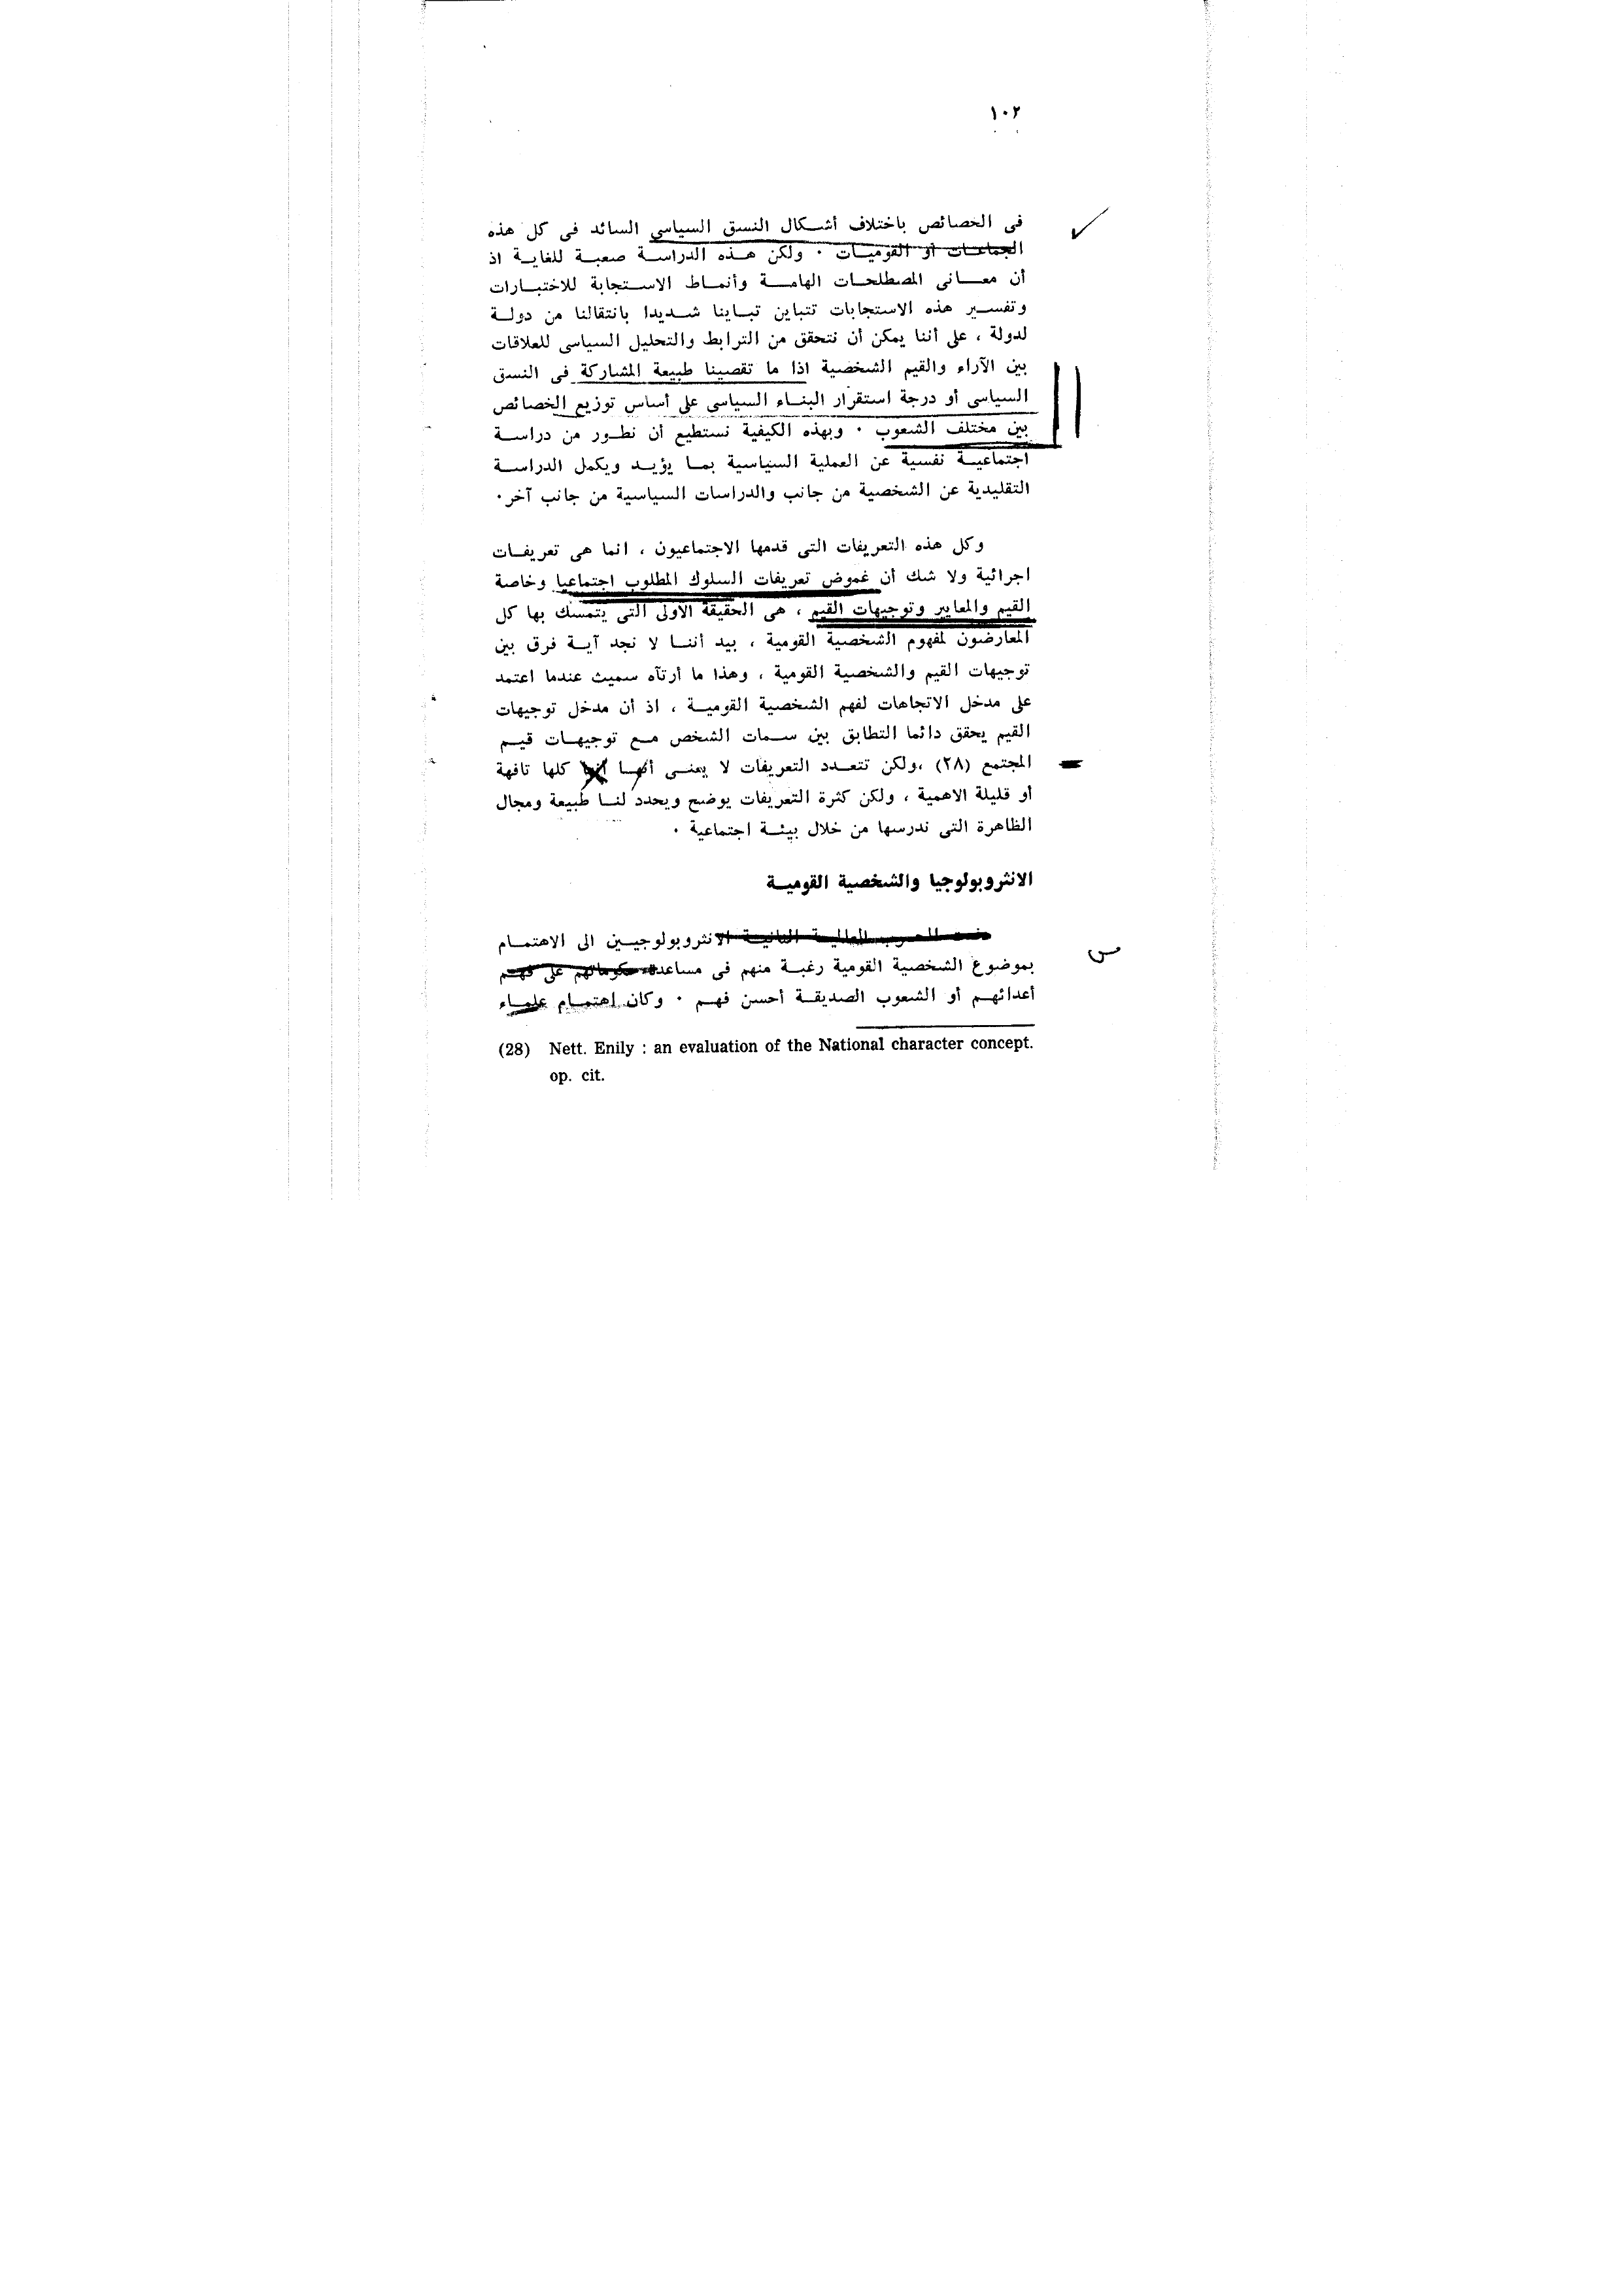 ١٠٢
فى الخصائص باختلاف أشكال النسق السياسى السائد فى كل هذه
الجماعات أو القوميات · ولكن هذه الدراسة صعبة للغاية اذ
أن معانى المصطلحات الهامة وأنماط الاستجابة للاختبارات
وتفسير هذه الاستجابات تتباين تباينا شديدا بانتقالنا من دولة
لدولة ، على أننا يمكن أن نتحقق من الترابط والتحليل السياسى للعلاقات
بين الآراء والقيم الشخصية اذا ما تقصينا طبيعة المشاركة فى النسق
السياسى أو درجة استقرار البناء السياسى على أساس توزيع الخصائص
بين مختلف الشعوب · وبهذه الكيفية نستطيع أن نطور من دراسة
اجتماعية نفسية عن العملية السياسية بما يؤيد ويكمل الدراسة
التقليدية عن الشخصية من جانب والدراسات السياسية من جانب آخر·
وكل هذه التعريفات التى قدمها الاجتماعيون ، انما هى تعريفات
اجرائية ولا شك أن غموض تعريفات السلوك المطلوب اجتماعيا وخاصة
القيم والمعايير وتوجيهات القيم ، هى الحقيقة الأولى التى يتمسك بها كل
المعارضون لمفهوم الشخصية القومية ، بيد أننا لا نجد آية فرق بين
توجيهات القيم والشخصية القومية ، وهذا ما أرتآه سميث عندما اعتمد
على مدخل الاتجاهات لفهم الشخصية القومية ، اذ أن مدخل توجيهات
القيم يحقق دائما التطابق بين سمات الشخص مع توجيهات قيم
المجتمع (٢٨) ،ولكن تتعدد التعريفات لا يعنى أنها كلها تافهة
أو قليلة الاهمية ، ولكن كثرة التعريفات يوضح ويحدد لنا طبيعة ومجال
الظاهرة التى ندرسها من خلال بيئة اجتماعية ·
الانثروبولوجيا والشخصية القومية
الحرب العالمية الثانية الانثروبولوجيين الى الاهتمام
بموضوع الشخصية القومية رغبة منهم فى مساعدة حكوماتهم على فهم
أعدائهم أو الشعوب الصديقة أحسن فهم · وكان اهتمام علماء
(28) Nett. Enily : an evaluation of the National character concept.
op. cit.